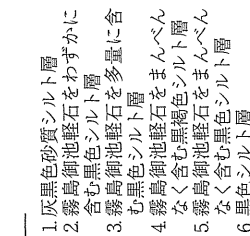 1. 灰黒色砂質シルト層
2. 霧島御池軽石をわずかに
含む黒色シルト層
3. 霧島御池軽石を多量に含
む黒色シルト層
4. 霧島御池軽石をまんべん
なく含む黒褐色シルト層
5. 霧島御池軽石をまんべん
なく含む黒色シルト層
6. 黒色シルト層